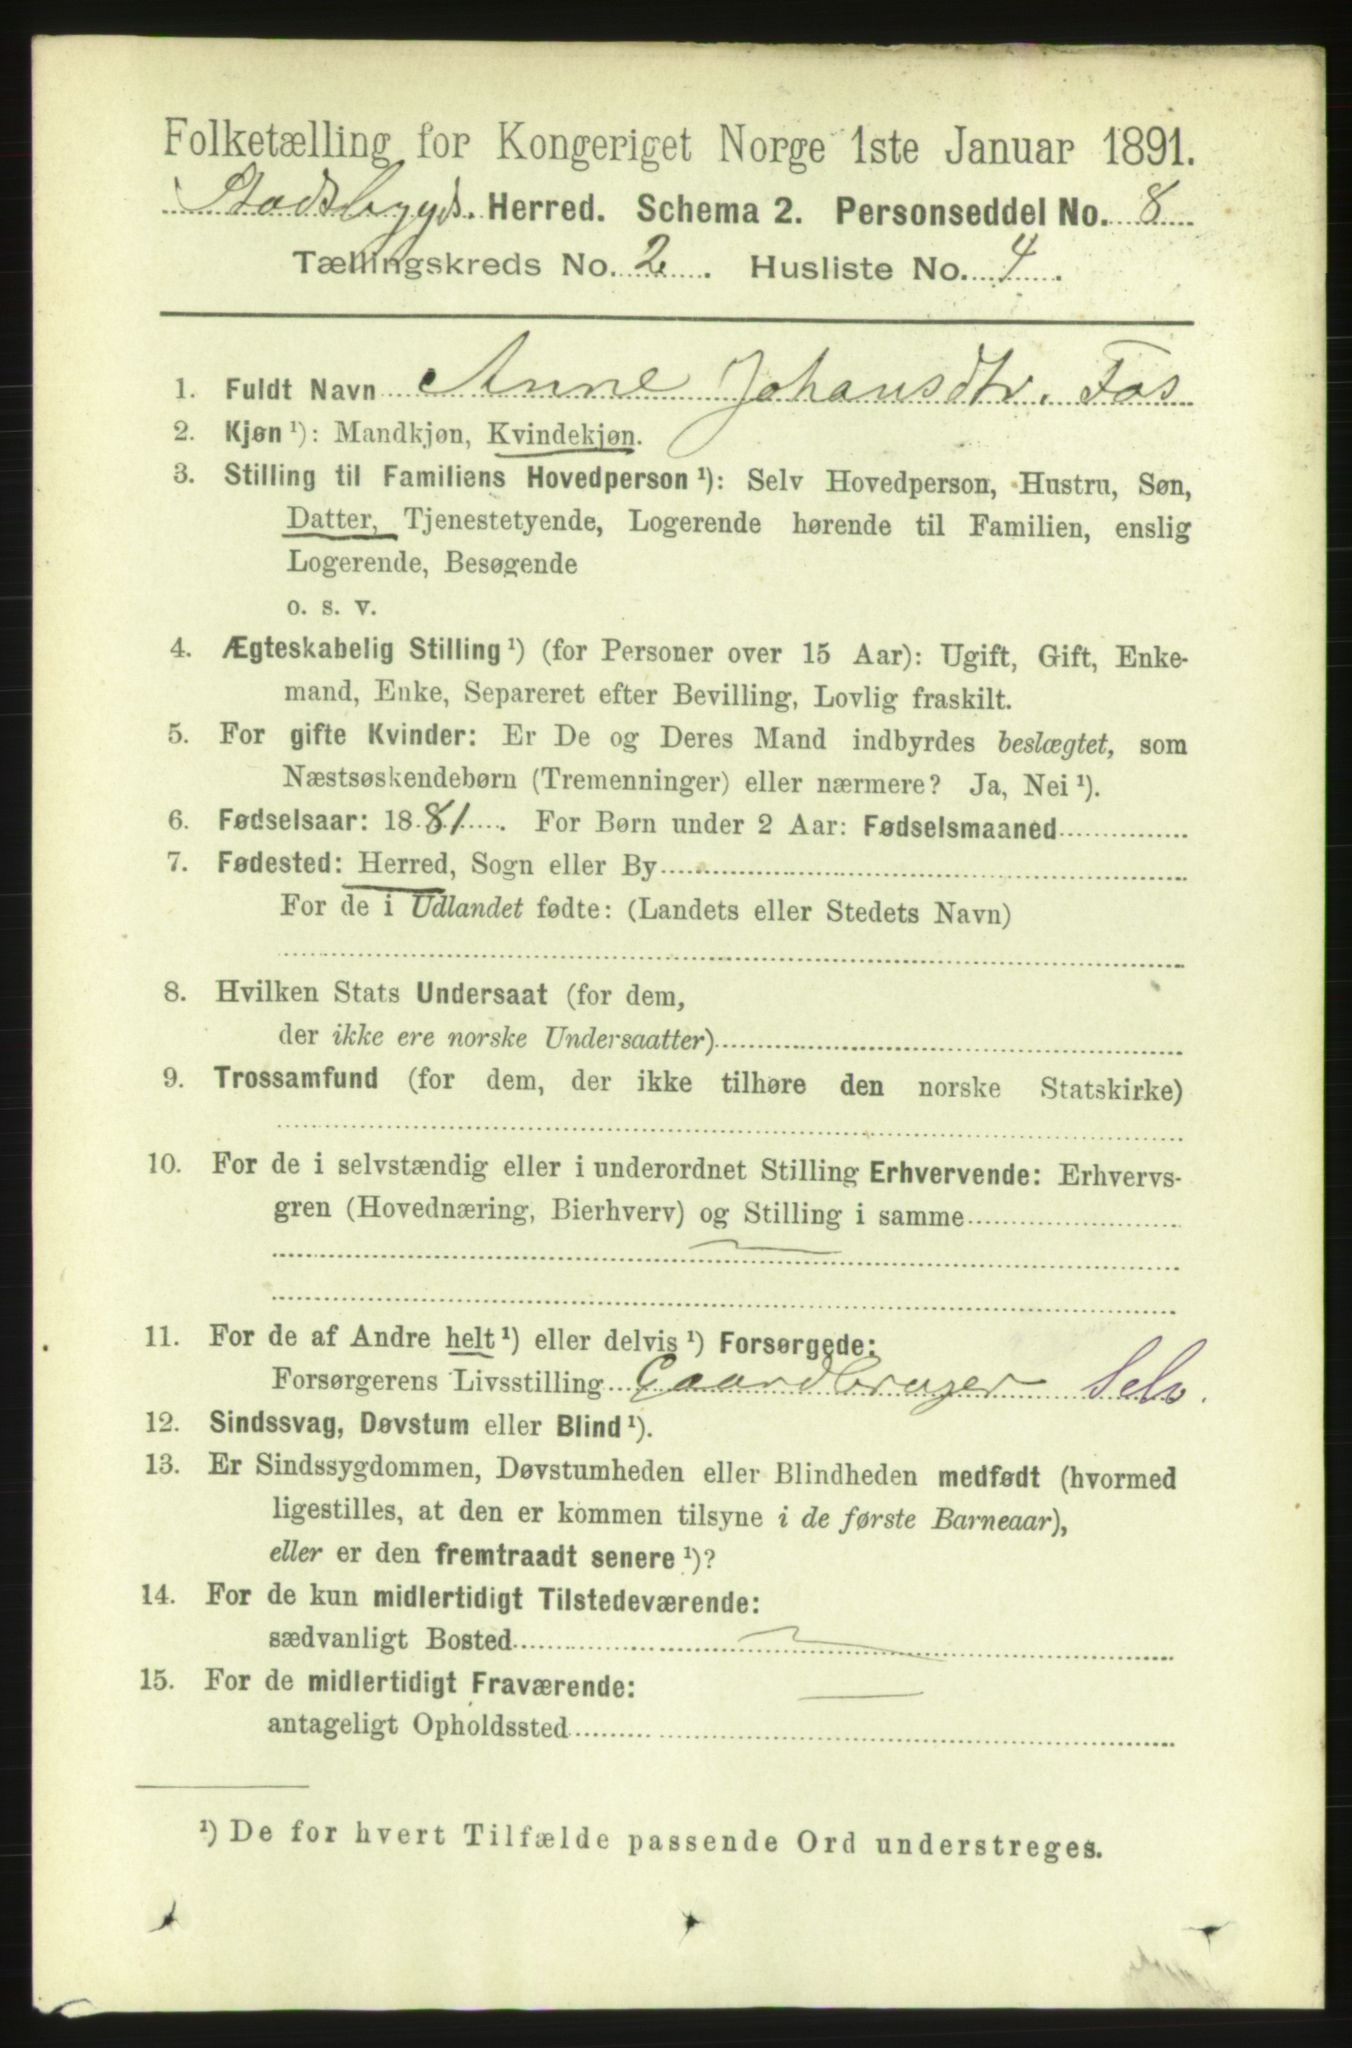 Folketælling for Kongeriget Norge 1ste Januar 1891.
Stadsbygd. Herred. Schema 2. Personseddel No. 8
Tællingskreds No. 2. Husliste No. 4.
1. Fuldt Navn Anne Johansdtr. Fos
2. Kjøn ¹): Mandkjøn, Kvindekjøn.
3. Stilling til Familiens Hovedperson ¹): Selv Hovedperson, Hustru, Søn,
Datter, Tjenestetyende, Logerende hørende til Familien, enslig
Logerende, Besøgende
o. s. v.
4. Ægteskabelig Stilling ¹) (for Personer over 15 Aar): Ugift, Gift, Enke-
mand, Enke, Separeret efter Bevilling, Lovlig fraskilt.
5. For gifte Kvinder: Er De og Deres Mand indbyrdes beslægtet, som
Næstsøskendebørn (Tremenninger) eller nærmere? Ja, Nei ¹).
6. Fødselsaar: 1881. For Børn under 2 Aar: Fødselsmaaned
7. Fødested: Herred, Sogn eller By
For de i Udlandet fødte: (Landets eller Stedets Navn)
8. Hvilken Stats Undersaat (for dem,
der ikke ere norske Undersaatter)
9. Trossamfund (for dem, der ikke tilhøre den norske Statskirke)
10. For de i selvstændig eller i underordnet Stilling Erhvervende: Erhvervs-
gren (Hovednæring, Bierhverv) og Stilling i samme
11. For de af Andre helt ¹) eller delvis ¹) Forsørgede:
Forsørgerens Livsstilling Gaardbruger Selv.
12. Sindssvag, Døvstum eller Blind ¹).
13. Er Sindssygdommen, Døvstumheden eller Blindheden medfødt (hvormed
ligestilles, at den er kommen tilsyne i de første Barneaar),
eller er den fremtraadt senere ¹)?
14. For de kun midlertidigt Tilstedeværende:
sædvanligt Bosted
15. For de midlertidigt Fraværende:
antageligt Opholdssted
¹) De for hvert Tilfælde passende Ord understreges.